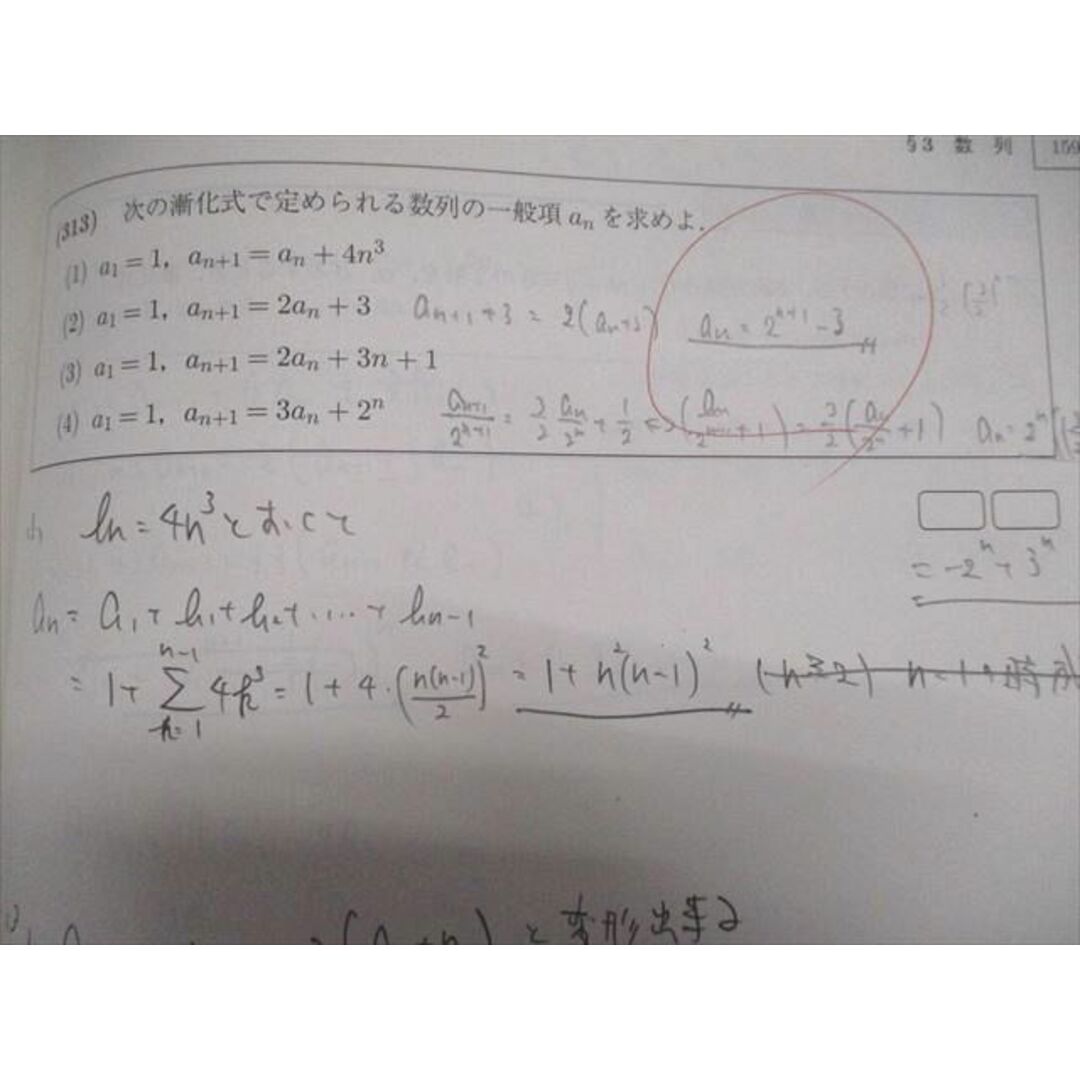 §3 数列 159
(313) 次の漸化式で定められる数列の一般項 aₙ を求めよ.
(1) a₁ = 1, aₙ₊₁ = aₙ + 4n³
(2) a₁ = 1, aₙ₊₁ = 2aₙ + 3 aₙ₊₁+3 = 2(aₙ+3) aₙ = 2ⁿ⁺¹-3
(3) a₁ = 1, aₙ₊₁ = 2aₙ + 3n + 1
(4) a₁ = 1, aₙ₊₁ = 3aₙ + 2ⁿ aₙ₊₁/2ⁿ⁺¹ = 3/2 aₙ/2ⁿ + 1/2 ⇔ (aₙ₊₁/2ⁿ⁺¹+1) = 3/2(aₙ/2ⁿ+1) aₙ = 2ⁿ
= -2ⁿ+3ⁿ
bn = 4n³とおくと
an = a₁+b₁+b₂+.....+bn-1
= 1+ Σ[k=1, n-1] 4k³ = 1+4・(n(n-1)/2)² = 1+n²(n-1)² (n≧2)
(an+n) と変形出来る